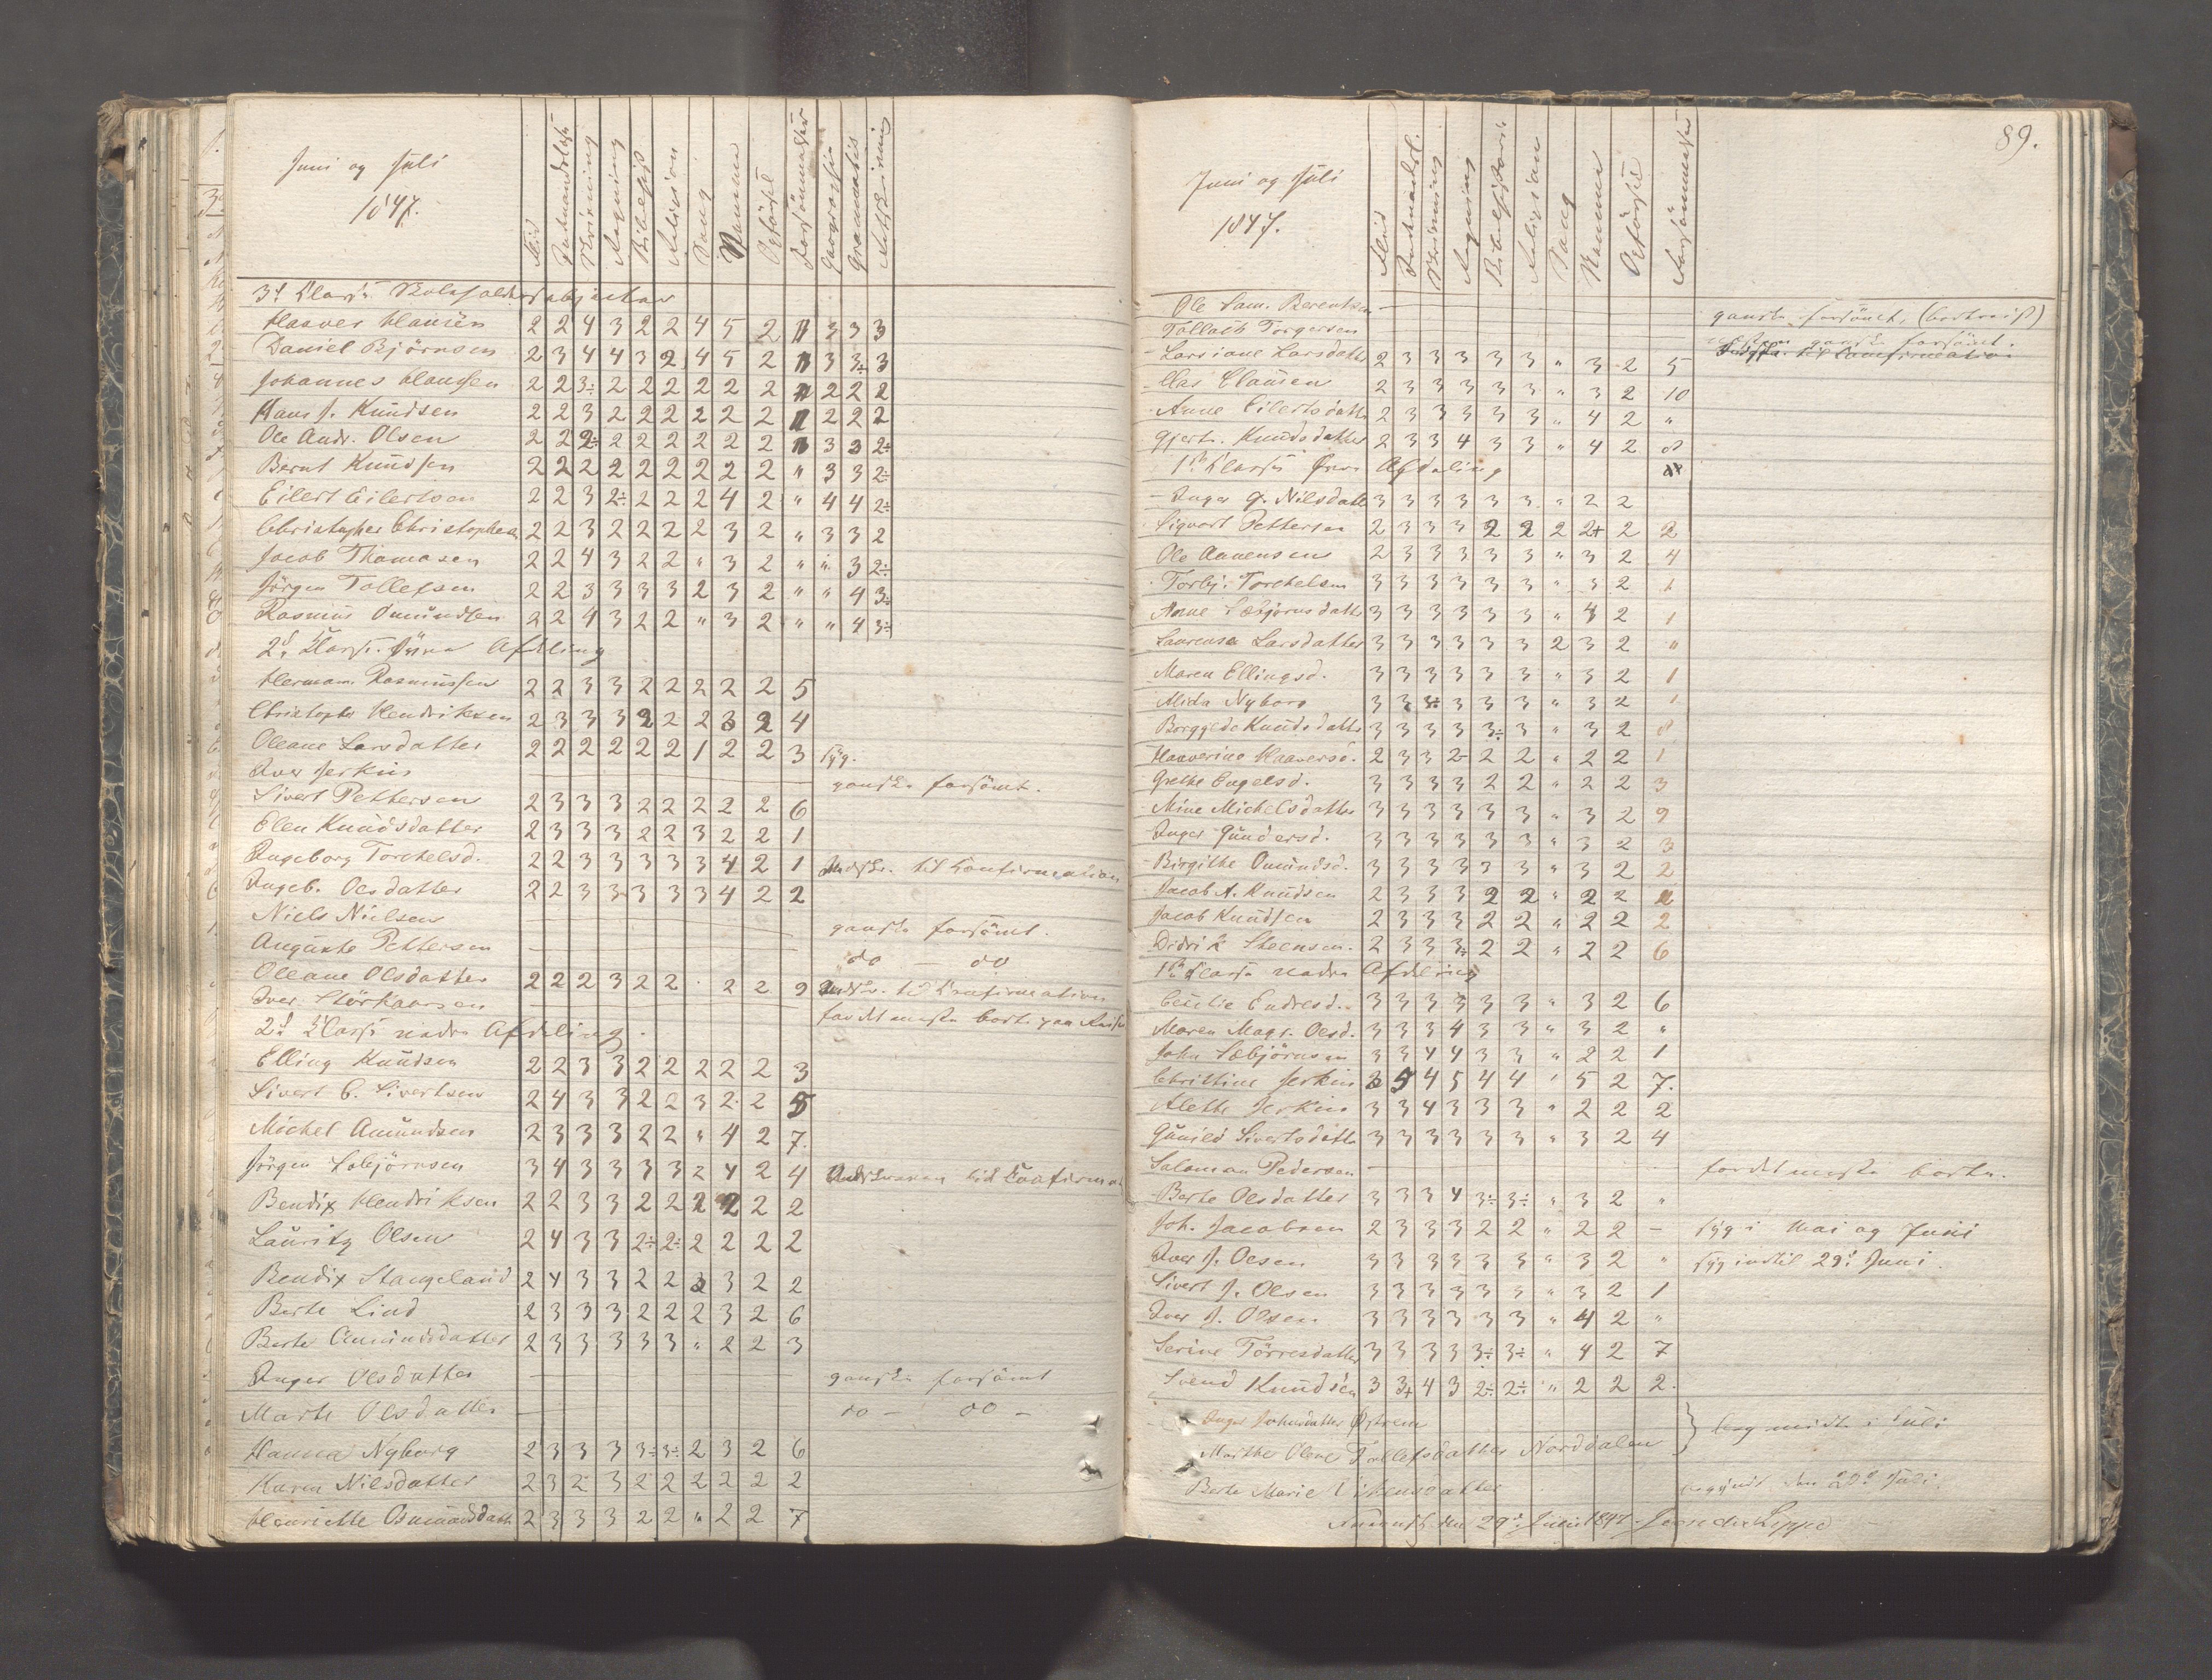 Juni og Juli
1847.
Flid
Skrivning
Regning
Religion
Sang
Opförsel
Forsömmelser
Geographie
Grammatik
Retskrivning
3d Klasse
Haaver Hansen 2 2 4 3 2 2 4 5 2 11 3 3 3
Daniel Björnsen 2 3 4 4 3 2 4 5 2 11 3 3+ 3
Johannes Clausen 2 2 3÷ 2 2 2 2 2 2 11 2 2 2
Hans J. Knudsen 2 2 3 2 2 2 2 2 2 11 2 2 2
Ole Andr. Olsen 2 2 2÷ 2 2 2 2 2 2 11 3 3 2÷
Bernt Knudsen 2 2 2 2 2 2 2 2 2 " 3 3 2÷
Eilert Eilertsen 2 2 3 2÷ 2 2 2 4 2 " 4 4 2÷
Christopher Christophersen 2 2 3 2 2 2 2 3 2 " 3 3 2
Jacob Thomasen 2 2 4 3 2 2 " 3 2 " " 3 2÷
Jörgen Tollefsen 2 2 3 3 3 3 2 3 2 " " 4 3÷
Rasmus Omundsen 2 2 4 3 2 2 " 3 2 " " 4 3÷
2d Klasse Övre Afdeling
Herman Rasmussen 2 2 3 3 2 2 2 2 2 5
Christopher Hendriksen 2 3 3 3 2 2 2 3 2 4
Oleane Larsdatter 2 2 2 2 2 2 1 2 2 3 syg.
Iver Jerkin ganske forsömt.
Sivert Pettersen 2 3 3 3 2 2 2 2 2 6
Elen Knudsdatter 2 3 3 3 2 2 3 2 2 1
Ingeborg Torkelsd. 2 2 3 3 3 3 3 4 2 1 Udskr. til Confirmation
Ingeb. Olsdatter 2 2 3 3 3 3 3 4 2 2
Niels Nielsen ganske forsömt.
Auguste Pettersen do — do
Oleane Olsdatter 2 2 2 3 2 2 . 2 2 9 Udskr. til Confirmation
Iver Störkaarsen for det meste borte paa
2d Klasse nedre Afdeling.
Elling Knudsen 2 2 3 3 2 2 2 2 2 3
Sivert C. Sivertsen 2 4 3 3 2 2 3 2 2 5
Michel Amundsen 2 3 3 3 2 2 " 4 2 7.
Jörgen Sebjörnsen 3 4 3 3 3 3 2 4 2 4 Udskreven til Confirmat
Bendix Hendriksen 2 2 3 3 2 2 2 2 2 2
Lauritz Olsen 2 4 3 3 2÷ 2÷ 2 2 2 2
Bendix Stangeland 2 4 3 3 2 2 3 3 2 2
Berte Lind 2 3 3 3 2 2 2 3 2 6
Berte Amundsdatter 2 3 3 3 3 3 " 2 2 3
Inger Olsdatter ganske forsömt
Marte Olsdatter do — do —
Hanna Nyborg 2 3 3 3 3÷ 3÷ 2 3 2 6
Karen Nilsdatter 2 3 2 3 2 2 2 2 2 2
Henriette Osmundsdatt 2 3 3 3 2 2 " 2 2 7
89.
Juni og Juli
1847.
Flid
Skrivning
Regning
Bibelhistorie
Religion
Sang
Opförsel
Forsömmelser
Ole Sam. Berentsen —
Tollach Torgersen ganske forsömt, (bortreist)
Larsiane Larsdatter 2 3 3 3 3 3 " 3 2 5
Clausen 2 3 3 3 3 3 " 3 2 10
Anne Eilertsdatter 2 3 3 3 3 3 " 4 2 "
Gjertr. Knudsdatter 2 3 3 4 3 3 " 4 2 8
1ste Klasse Övre Afdeling
Inger G. Nilsdatt 3 3 3 3 3 3 " 2 2
Sigvart Pettersen 2 3 3 3 2 2 2 2+ 2 2
Ole Aanensen 2 3 3 3 3 3 " 3 2 4
Torbj. Torkelsen 3 3 3 3 3 3 " 3 2 1
Anne Sæbjörnsdatter 3 3 3 3 3 3 " 4 2 1
Laurense Larsdatter 3 3 3 3 3 3 2 3 2 "
Maren Ellingsd. 3 3 3 3 3 3 " 3 2 1
Alida Nyborg 3 3 3÷ 3 3 3 " 3 2 1
Borggede Knudsdatter 3 3 3 3 3÷ 3 " 3 2 8
Haaverine Haaversd. 2 3 3 2 2 2 " 2 2 1
Grethe Engelsd. 3 3 3 3 2 2 " 2 2 3
Mine Michelsdatter 3 3 3 3 3 3 " 3 2 9
Inger Gundersd. 3 3 3 3 3 3 " 3 2 3
Birgithe Omundsd. 3 3 3 3 3 3 " 3 2 2
Jacob A. Knudsen 2 3 3 3 2 2 " 2 2 2
Jacob Knudsen 2 3 3 3 2 2 " 2 2 2
Didrik Steensen. 2 3 3 3÷ 2 2 " 2 2 6
1ste Klasse nedre Afdeling
Cecilie Endresd. 3 3 3 3 3 3 " 3 2 6
Maren Magr. Olsd. 3 3 3 4 3 3 " 3 2 "
John Sæbjörnsen 3 3 4 4 3 3 " 2 2 1
Christine Jerkin 3 5 4 5 4 4 ' 5 2 7.
Alethe Jerkin 3 3 4 3 3 3 " 2 2 2
Gunild Sivertsdatter 3 3 3 3 3 3 " 3 2 4
Salomon Pedersen — for det meste borte.
Berte Olsdatter 3 3 3 4 3÷ 3÷ " 3 2 "
Joh. Jacobsen 2 3 3 3 2 2 " 2 2 — syg i Mai og Juni
Iver J. Olsen 3 3 3 3 3 3 " 3 2 " syg indtil 29d Juni.
Sivert J. Olsen 3 3 3 3 3 3 " 3 2 1
Iver J. Olsen 3 3 3 3 3 3 " 4 2 "
Serine Törresdatter 3 3 3 3 3÷ 3÷ " 4 2 7
Svend Knudsen 3 3+ 4 3 2÷ 2÷ " 2 2 2.
Inger Johnsdatter Østrem
Marthe Olene Tollefsdatter Norddalen } begyndte i Juli
Berte Marie begyndt den 20d Juli.
den 29d Juli 1847